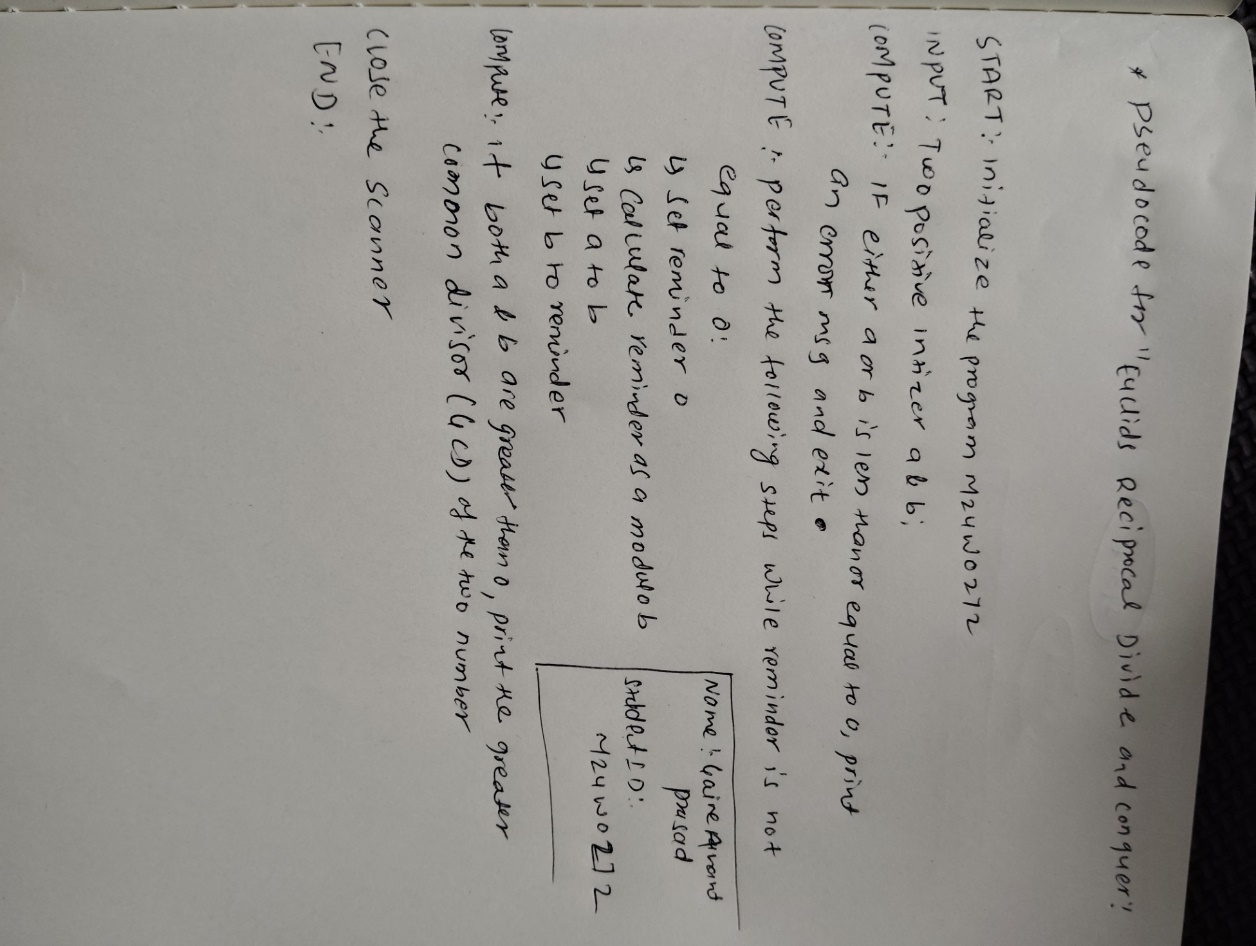 * Pseudocode for "Euclids Reciprocal Divide and conquer"
START :- initialize the program M24W0272
INPUT : Two positive intizer a & b;
COMPUTE :- IF either a or b is less than or equal to 0, print
an error msg and exit.
COMPUTE :- perform the following steps while reminder is not
equal to 0:
↳ set reminder 0
↳ Calculate reminder as a modulo b
↳ set a to b
↳ set b to reminder
compute :- if both a & b are greater than 0, print the greater
common divisor (GCD) of the two number
Close the Scanner
END :-
Name :- Gaire
prasad
Student ID:-
M24W0272